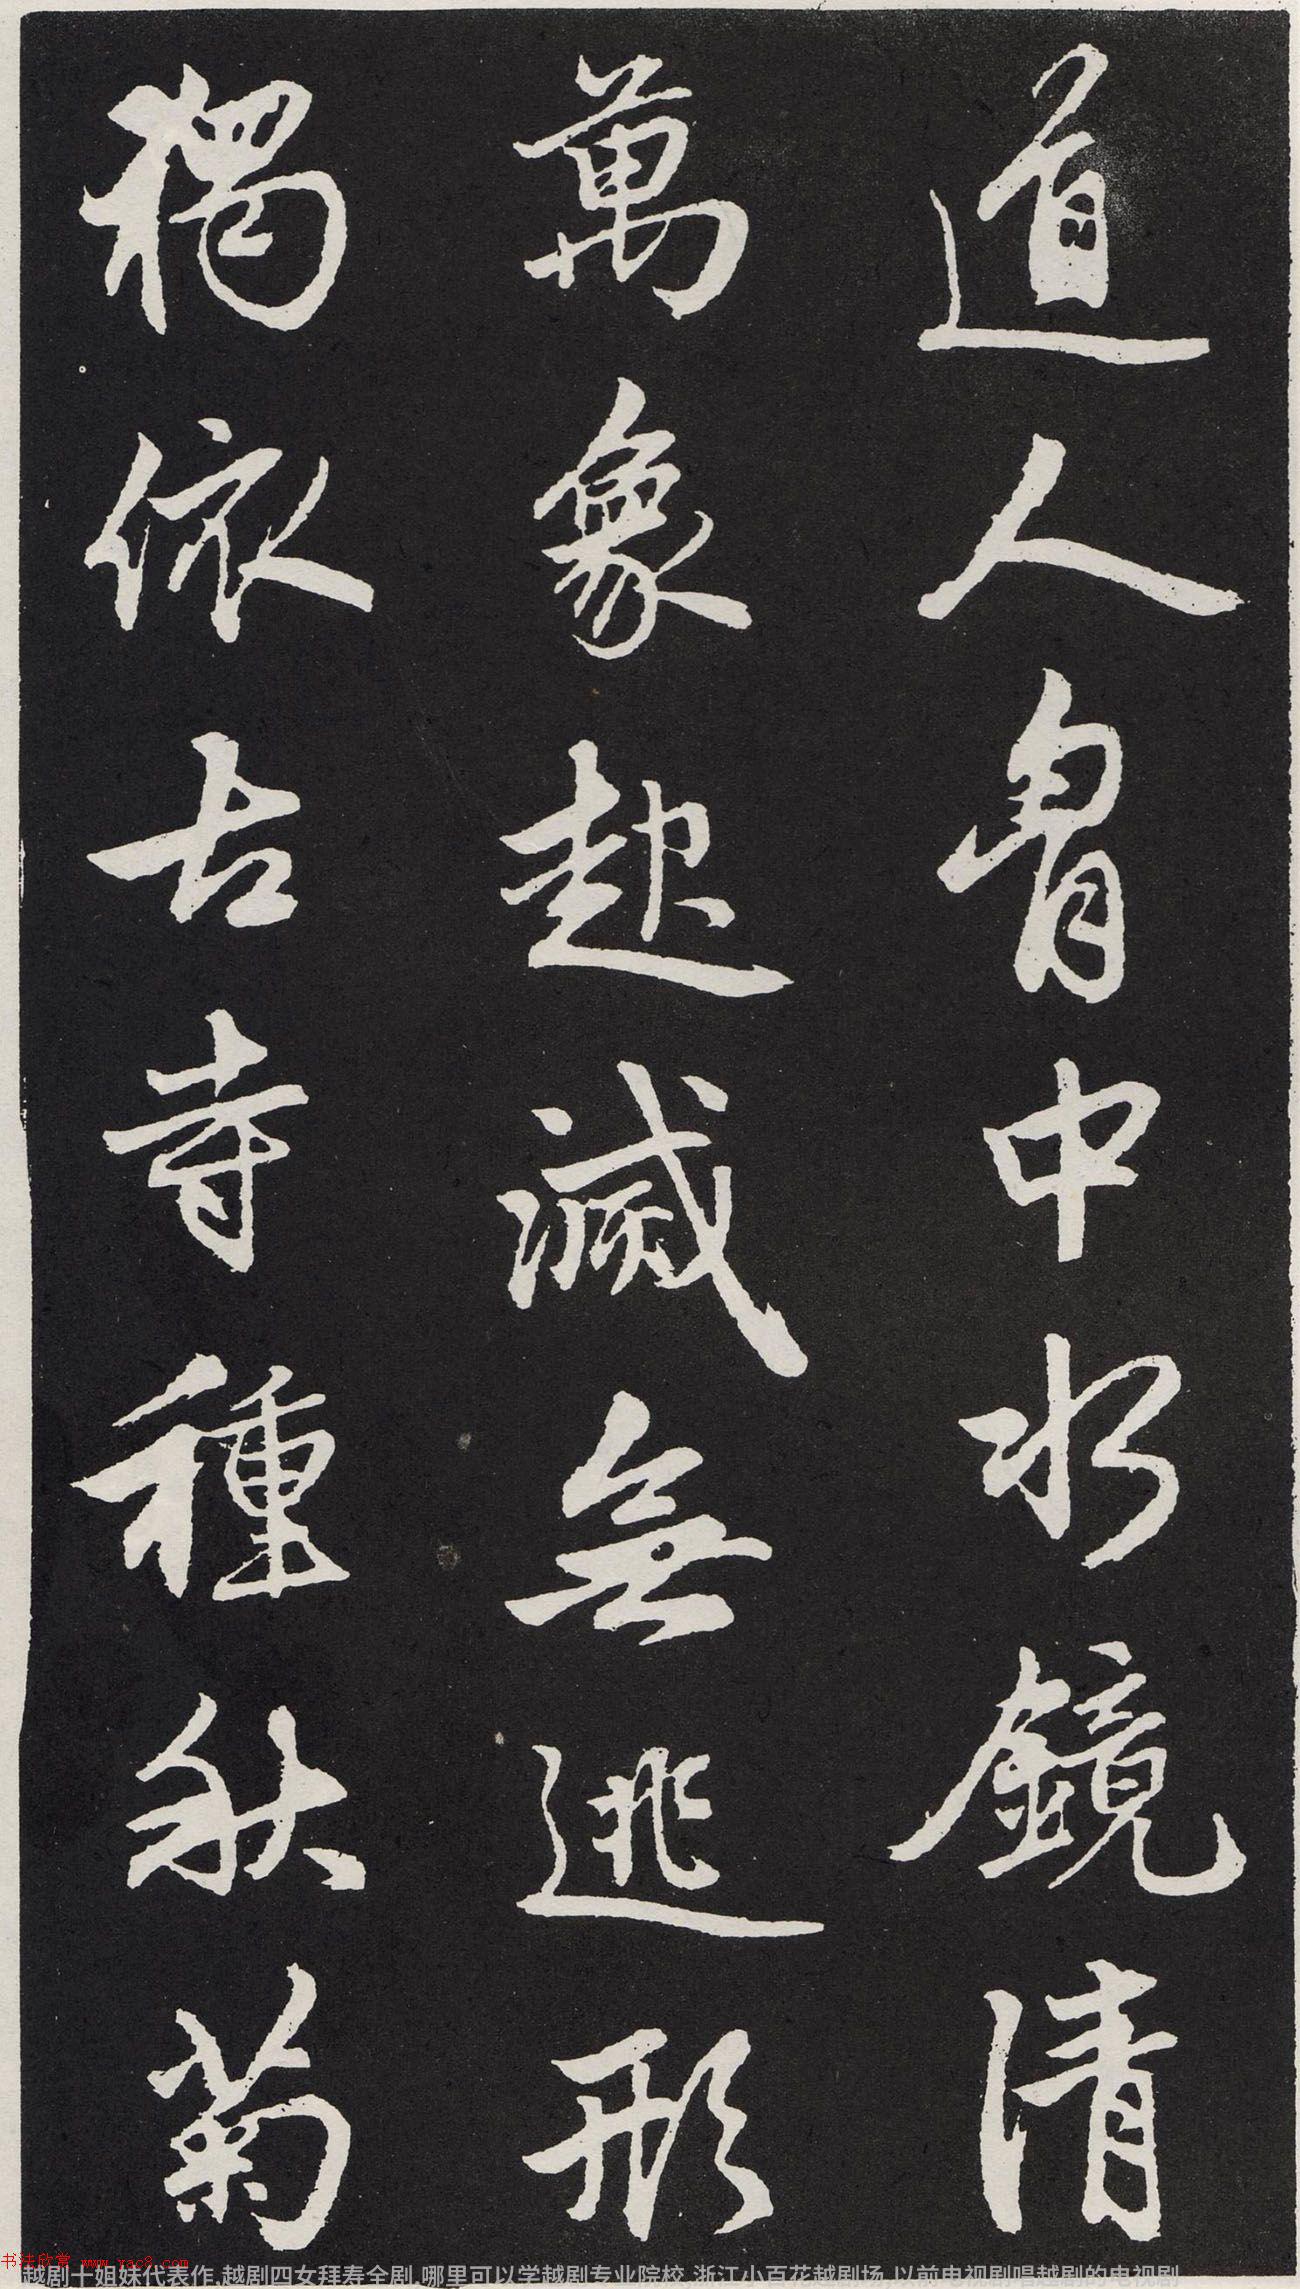 道人胷中水鏡清
萬象起滅無逃形
獨依古寺種秋菊
书法欣赏 www.yac8.com
越剧十姐妹代表作,越剧四女拜寿全剧,哪里可以学越剧专业院校,浙江小百花越剧场,以前电视剧唱越剧的电视剧